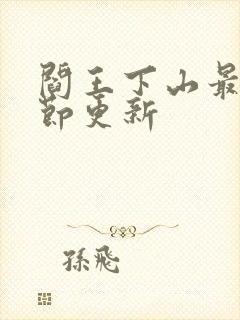 閻王下山最
節更新
孫飛